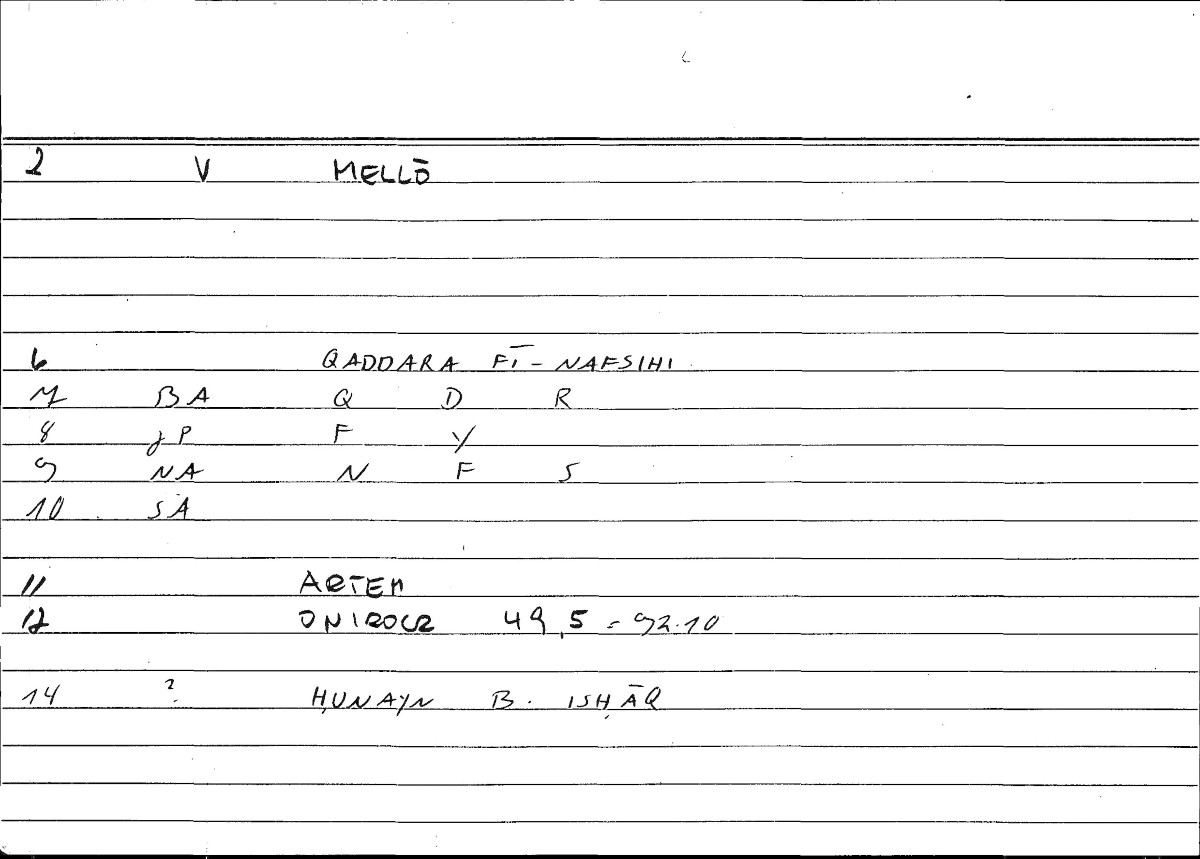 2 V MELLŌ
6 QADDARA FĪ-NAFSIHI
7 BA Q D R
8 JP F Y
9 NA N F S
10 SA
11 ARTEM
12 ONIROCR 49,5 = 92.10
14 ? ḤUNAYN B. ISḤĀQ